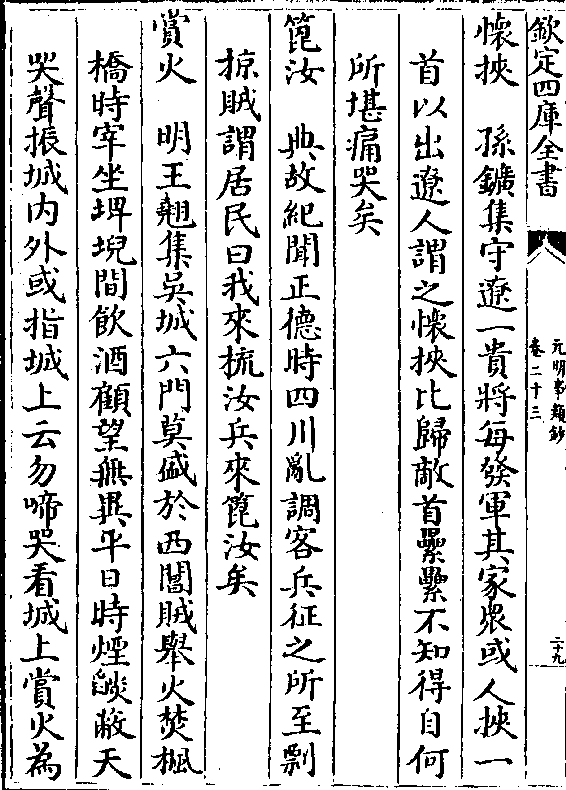 欽定四庫全書
元明事類鈔
卷二十三
二十九
懷挾　孫鑛集守遼一貴將每發軍其家衆或人挾一
首以出遼人謂之懷挾比歸敵首纍纍不知得自何
所堪痛哭矣
篦汝　典故紀聞正德時四川亂調客兵征之所至剽
掠賊謂居民曰我來梳汝兵來篦汝矣
賞火　明王翹集吳城六門莫盛於西閶賊舉火焚楓
橋時宰坐埤堄間飲酒顧望無異平日時煙燄蔽天
哭聲振城内外或指城上云勿啼哭看城上賞火為